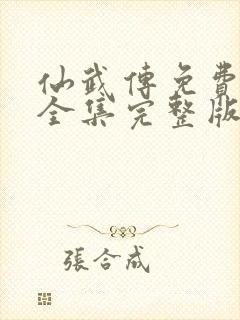 仙武傳免費
全集完整版
張合成